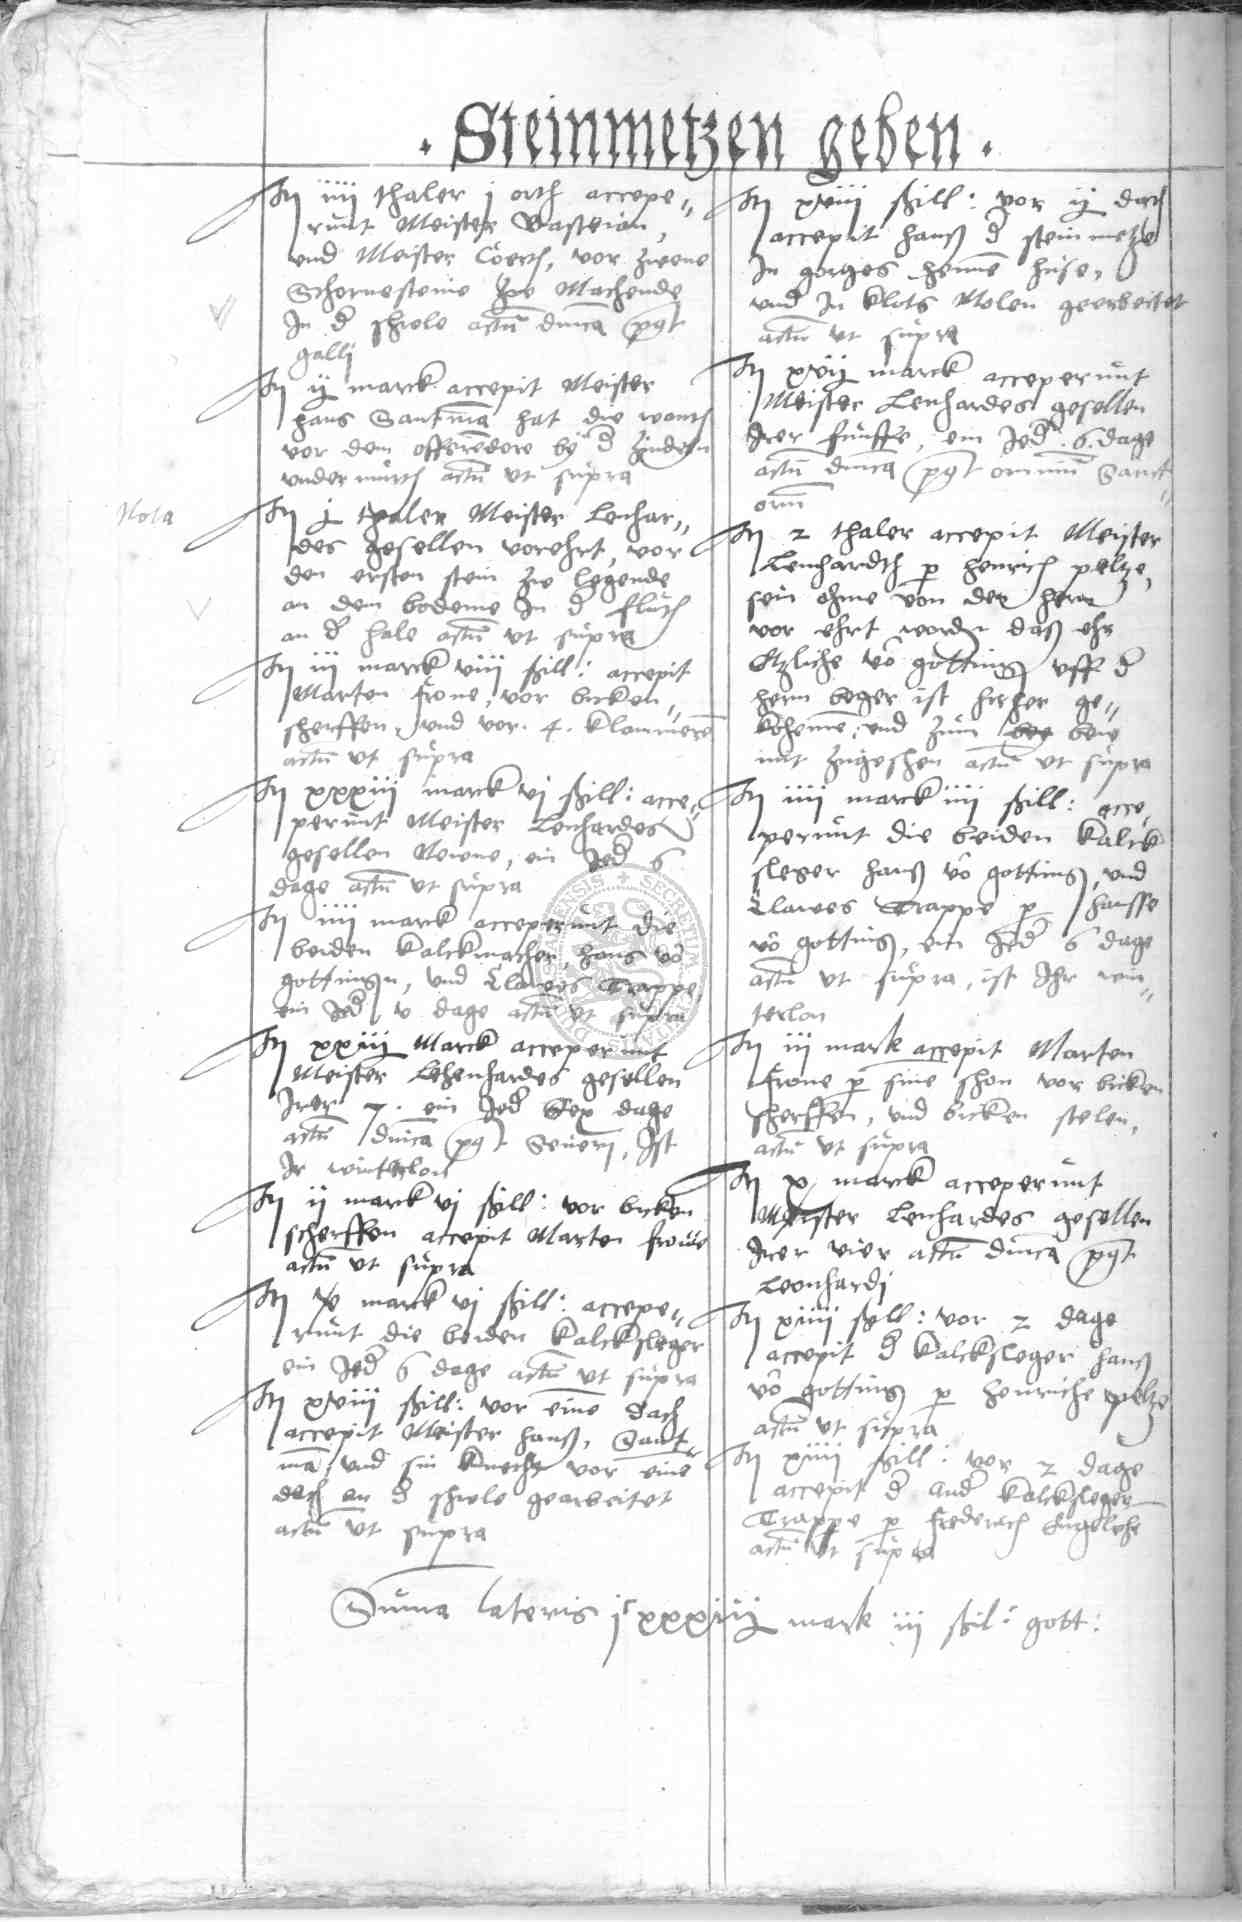 . Steinmetzen geben .
It iiii thaler j orth accepe„
runt Meister Basteian,
und Meister Coerth, vor zweene
Schornesteine zue Machende
In d schole actu dnica pgt
galli
It ij marck accepit Meister
hans Santma hat die
vor dem by d
under actu ut supra
Nota
It j thaler Meister Lenhar„
des gesellen vorehrt, vor
den ersten stein zue legende
an dem bodeme In d fluth
an d hale actu ut supra
It iii marck viii ßill: accepit
Marten frone, vor bicken„
sherffen, und vor 4. klammeren
actu ut supra
It xxxiij marck vj ßill: acce„
perunt Meister Lenhardes
gesellen Neiene, ein Jed 6
dage actu ut supra
It iiii marck acceperunt die
beiden kalckmacher, hans vo
gottingn, und Clawes Trappe
ein Jed v dage actu ut supra
It xxiiij Marck acceperunt
Meister Lehenhardes gesellen
Irer 7. ein Jed sex dage
actu dnica pgt Severi, Ist
Ir winterlon
It ij marck vj ßill: vor bicken
scherffen accepit Marten frone
actu ut supra
It marck vj ßill: accepe„
runt die beiden kalcksleger
ein Jed 6 dage actu ut supra
It xviii ßill: vor eine dach
accepit Meister hanß, Sant„
ma, und sin knecht vor eine
dach an d shole gearbeitet
actu ut supra
It xviii ßill: vor ij dach
accepit hanß d steinmetze
In gorges henne huse,
und In klots Molen gearbeitet
actu ut supra
It xvij marck acceperunt
Meister Lenhardes gesellen
Irer funffe, ein Jed 6. dage
actu dnica pgt omniu Sanct„
oru
It 2 thaler accepit Meister
Lenhardth p henrich peltze,
sein ohme von der hern
vor ehrt worden daß ehr
Etzliche vo gotting uff d
hern beger ist hieher ge„
kohemen, und zum bew
mit zugesehen actu ut supra
It iiii marck iiii ßill: acce„
perunt die beiden kalck
sleger hanß vo gotting, und
Clawes Trappe p hansse
vo gotting, ein Jed 6 dage
actu ut supra, ist Ihr win„
terlon
It iii mark accepit Marten
frone p sine shon vor bicken
sherffen, und bicken stelen,
actu ut supra
It x marck acceperunt
Meister Lenhardes gesellen
Irer vier actu dnica pgt
Leonhardj
It xiiii ßill: vor 2 dage
accepit d kalcksleger hanß
vo gotting p henriche peltze
actu ut supra
It xiiii ßill: vor 2 dage
accepit d and kalcksleger
Trappe p frederich
actu ut supra
Suma lateris jc xxxiiij mark iii ßil: gott: